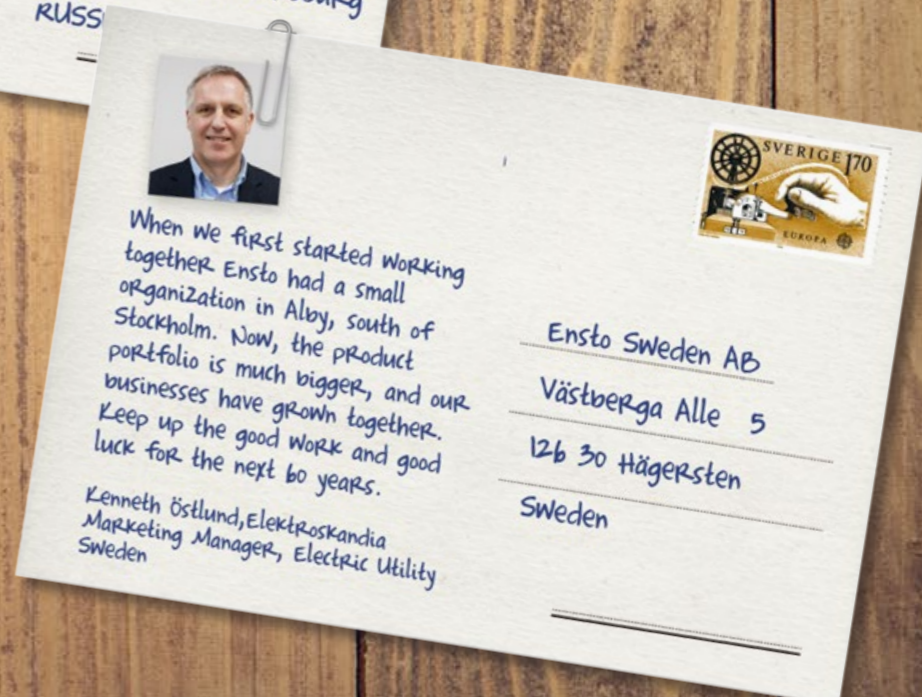 RUSS
When we first started working
together Ensto had a small
organization in Alby, south of
Stockholm. Now, the product
portfolio is much bigger, and our
businesses have grown together.
Keep up the good work and good
luck for the next 60 years.
Kenneth Östlund, Elektroskandia
Marketing Manager, Electric Utility
Sweden
SVERIGE 170
EUROPA
Ensto Sweden AB
Västberga Alle 5
126 30 Hägersten
Sweden